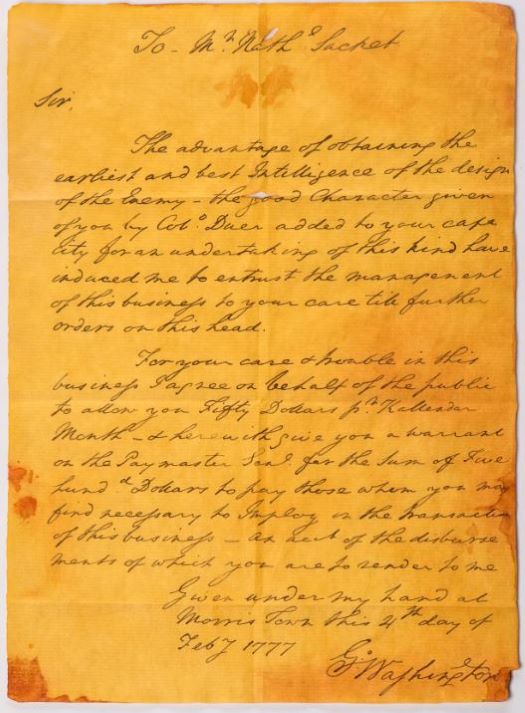 To - Mr. Nathl Sacket
Sir,
The advantage of obtaining the
earliest and best Intelligence of the design
of the Enemy - the good Character given
of you by Colo Duer added to your capa
city for an undertaking of this kind have
induced me to entrust the management
of this business to your care till further
orders on this head.
For your care & trouble in this
business I agree on behalf of the public
to allow you Fifty Dollars pr. Kallendar
Month - & herewith give you a warrant
on the Paymaster Genl. for the sum of Five
hundd Dollars to pay those whom you may
find necessary to Imploy in the transaction
of this business - an acct of the disburse
ments of which you are to render to me
Given under my hand at
Morris Town this 4th day of
Feby 1777
Go. Washington